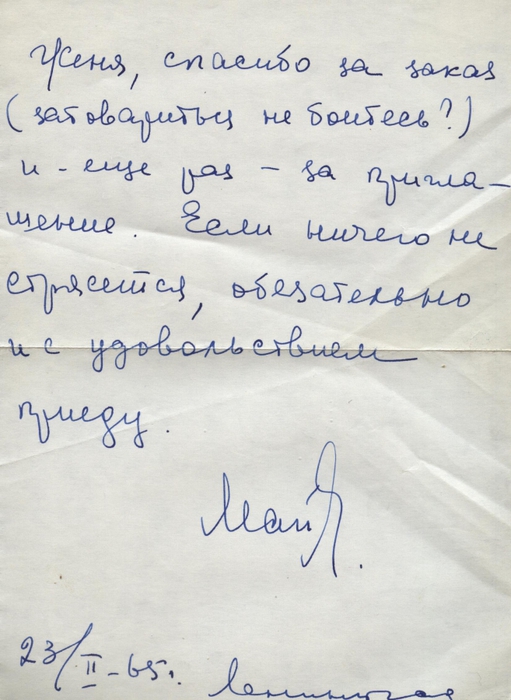 Женя, спасибо за заказ
(затовариться не боитесь?)
и - еще раз - за пригла-
шение. Если ничего не
стрясется, обязательно
и с удовольствием
приеду.
Май
23/II-65г. Ленинград